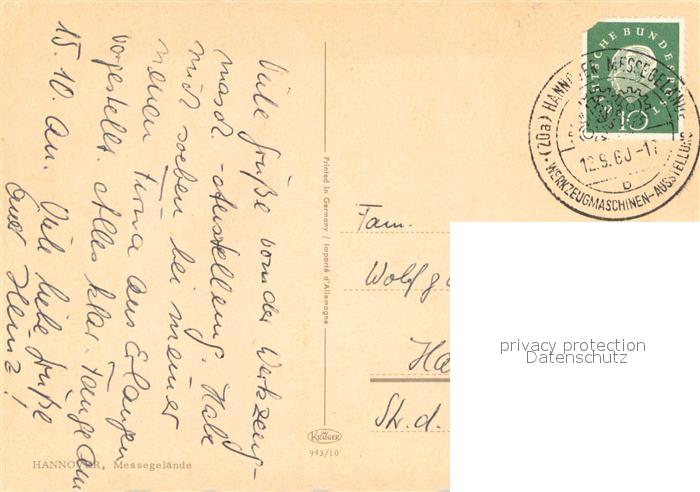 Viele Grüße von der Werkzeug-
masch.-Ausstellung. Habe
mich soeben bei meiner
neuen Firma aus Erlangen
vorgestellt. Alles klar. Fange am
15.10. an. Viele liebe Grüße
Euer Heinz!
HANNOVER, Messegelände
Printed in Germany / Importé d'Allemagne
KRÜGER
943/10
DEUTSCHE BUNDESPOST
10
(20a) HANNOVER MESSEGELÄNDE
12.9.60-17
b
WERKZEUGMASCHINEN-AUSSTELLUNG
Fam.
Wolfg
Ha
Str. d.
privacy protection
Datenschutz